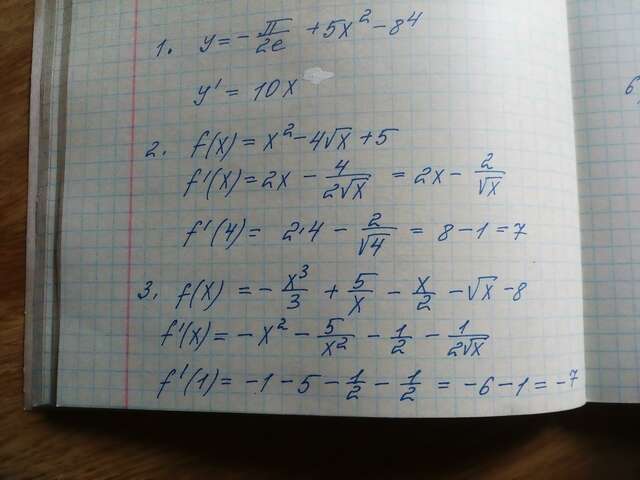 1. y = - π/2e + 5x² - 8⁴
y' = 10x
2. f(x) = x² - 4√x + 5
f'(x) = 2x - 4/2√x = 2x - 2/√x
f'(4) = 2·4 - 2/√4 = 8 - 1 = 7
3. f(x) = - x³/3 + 5/x - x/2 - √x - 8
f'(x) = - x² - 5/x² - 1/2 - 1/2√x
f'(1) = -1 - 5 - 1/2 - 1/2 = -6 - 1 = -7
6